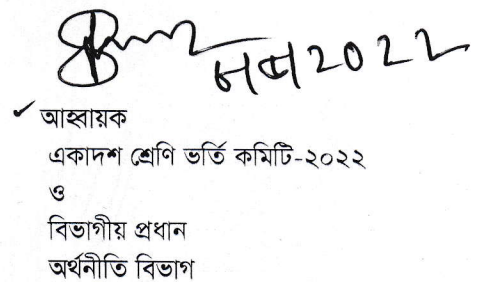 2022
আহ্বায়ক
একাদশ শ্রেণি ভর্তি কমিটি-২০২২
ও
বিভাগীয় প্রধান
অর্থনীতি বিভাগ